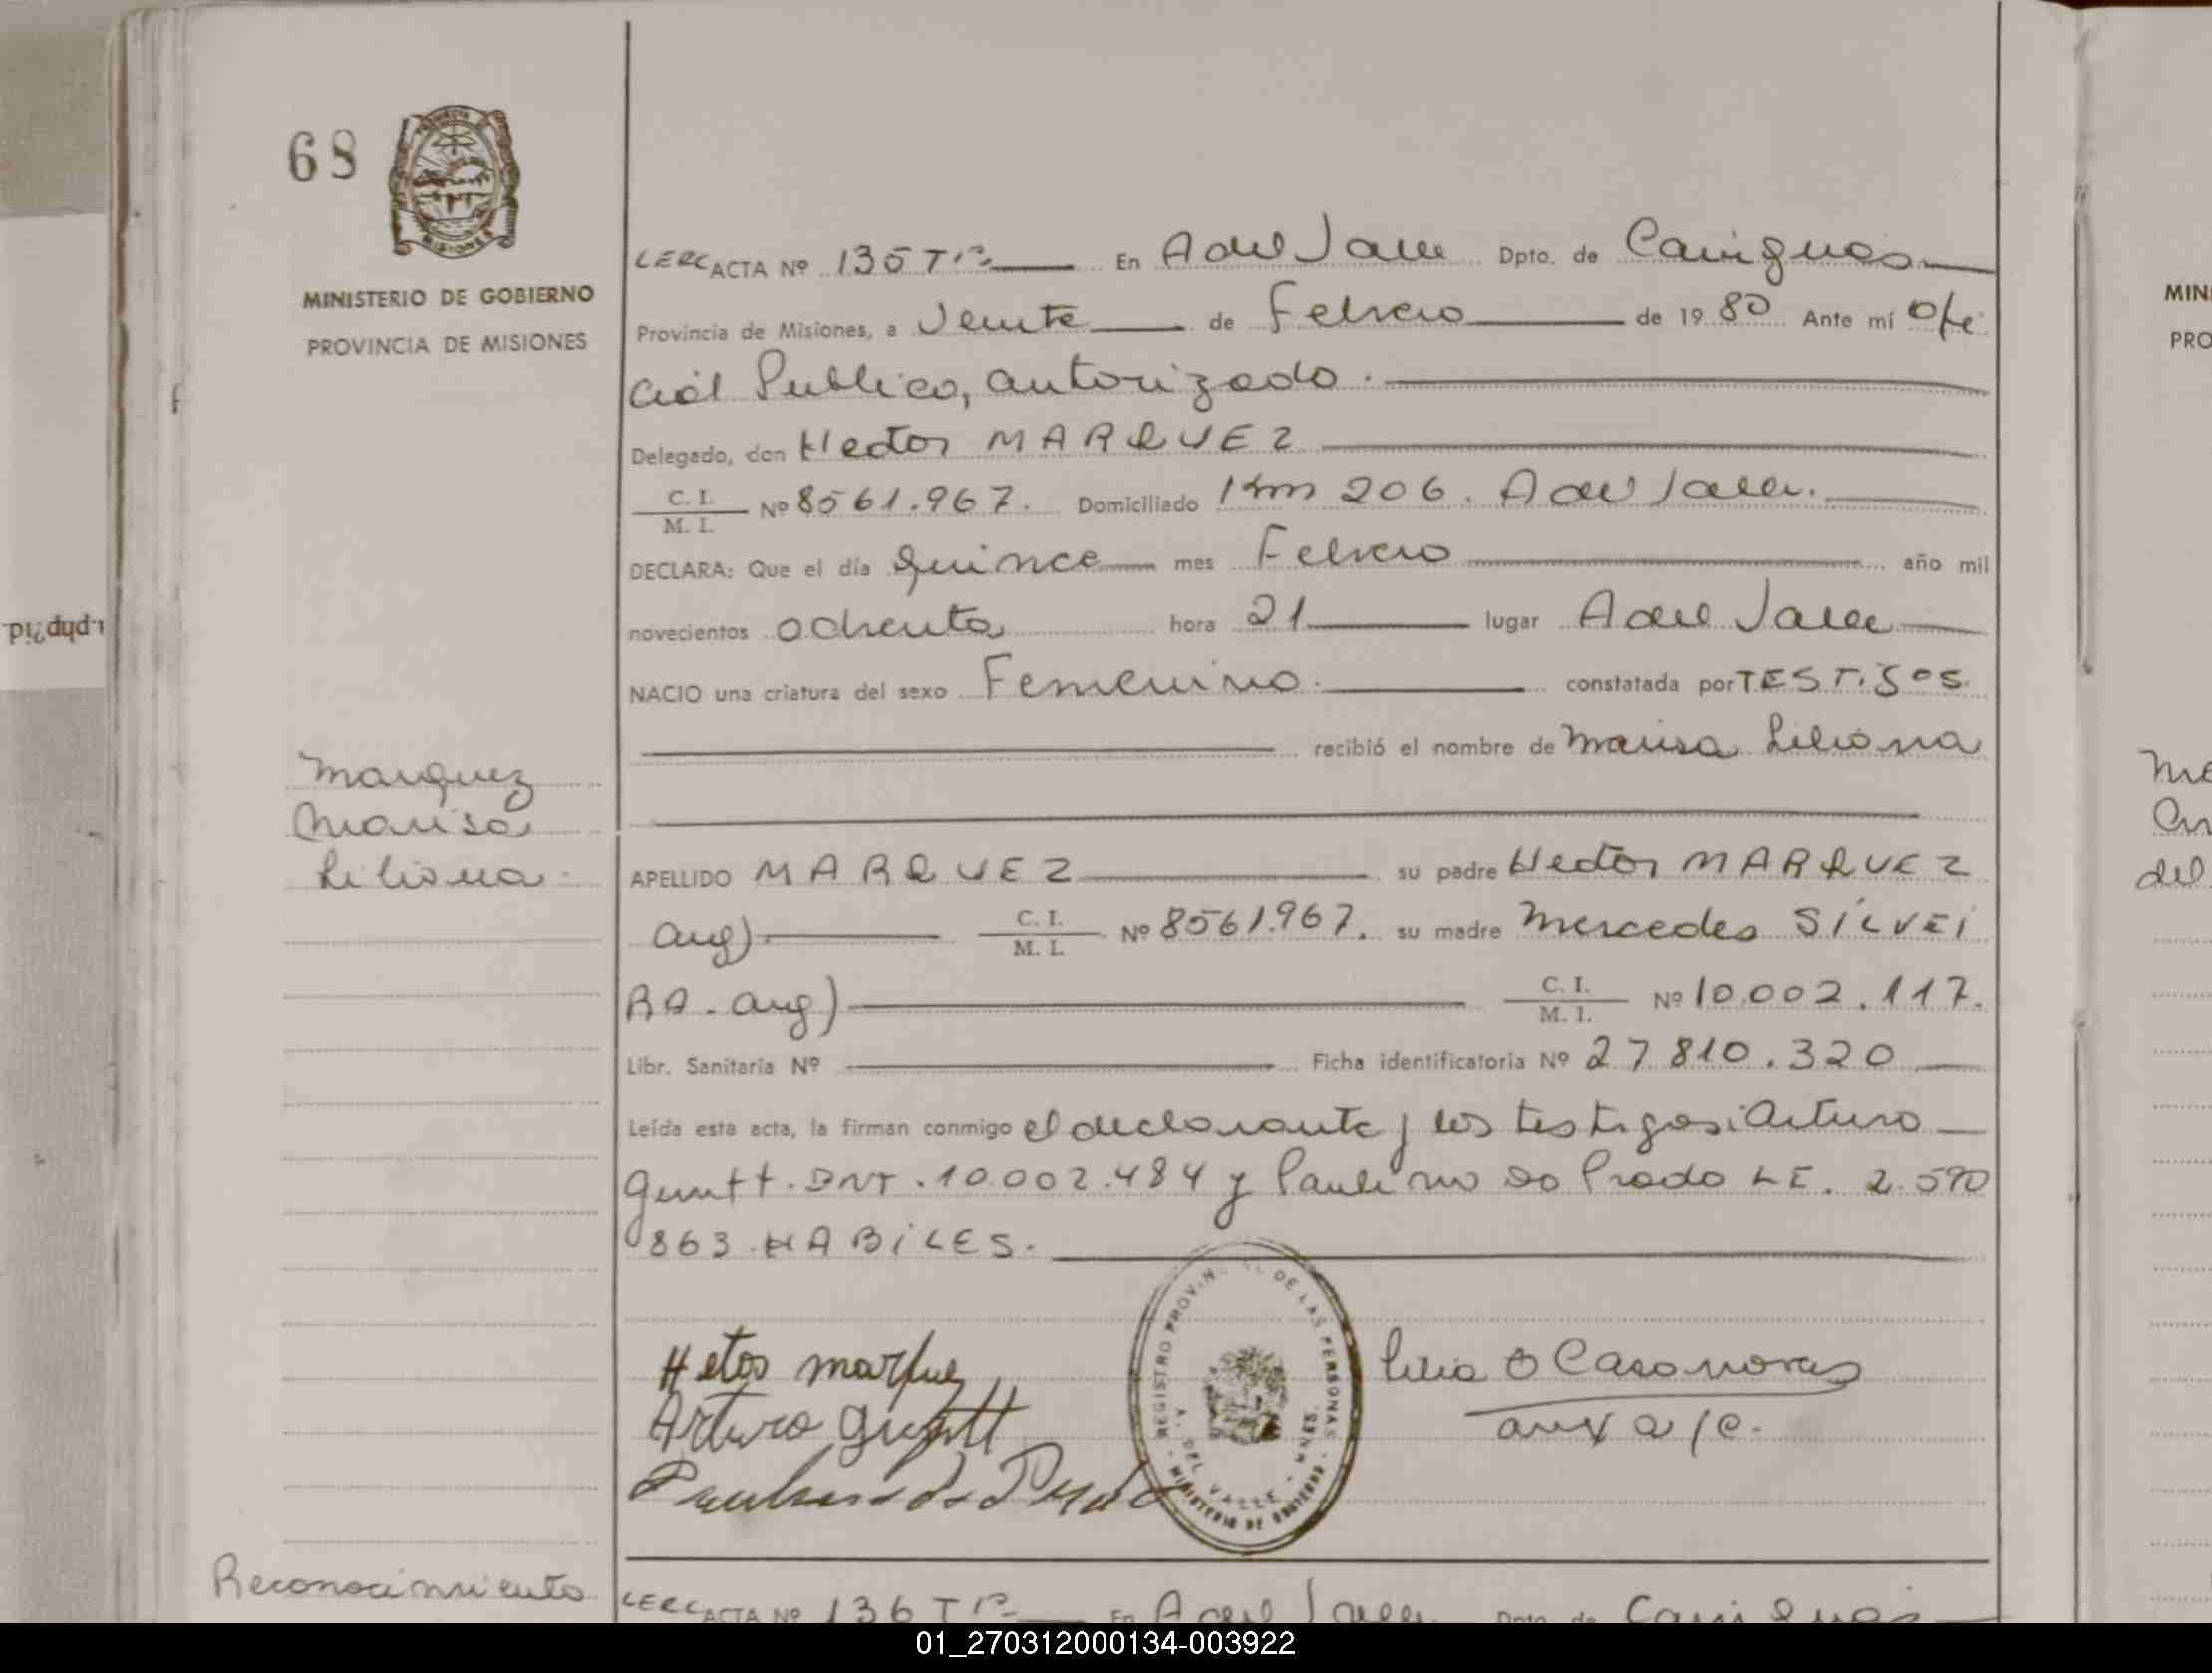 68
MINISTERIO DE GOBIERNO
PROVINCIA DE MISIONES
LERC ACTA Nº 135 Tº En A del Valle Dpto. de Cainguás
Provincia de Misiones, a Veinte de Febrero de 1980 Ante mí Ofi
cial Publico, autorizado.
Delegado, don Hector MARQUEZ
C. I. / M. I. Nº 8561.967. Domiciliado Km 206. A del Valle.
DECLARA: Que el día quince mes Febrero año mil
novecientos ochenta hora 21 lugar A del Valle
NACIO una criatura del sexo Femenino. constatada por TESTIGOS.
recibió el nombre de Marisa Liliana
Marquez
Marisa
Liliana.
APELLIDO MARQUEZ su padre Hector MARQUEZ
arg). C. I. / M. I. Nº 8561.967. su madre Mercedes SILVEI
RA. arg) C. I. / M. I. Nº 10.002.117.
Libr. Sanitaria Nº Ficha identificatoria Nº 27810.320
Leída esta acta, la firman conmigo el declarante y los testigos: Arturo
DNI. 10.002.484 y Paulino Do Prado LE. 2.590
863. HABILES.
Hetor marquez
Arturo
Paulino do Prado
REGISTRO PROVINCIAL DE LAS PERSONAS
A. DEL VALLE - MNES.
MINISTERIO DE GOBIERNO
Lilia O Casanovas
aux a/c.
Reconocimiento
LERC ACTA Nº 136 Tº En A del Valle Dpto. de Cainguás
MIN
PRO
del
r.php?id
01_270312000134-003922